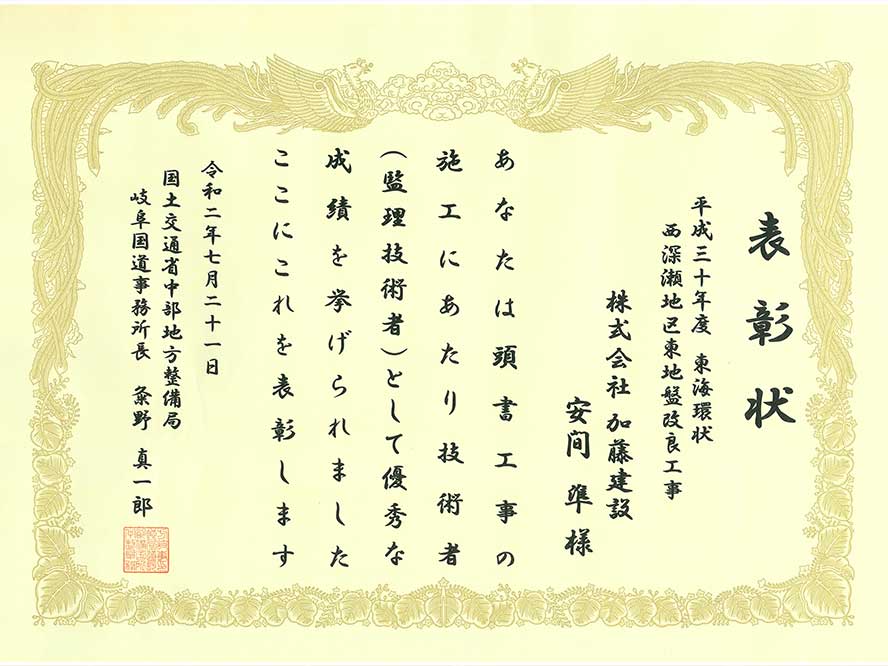 表彰状
平成三十年度 東海環状
西深瀬地区東地盤改良工事
株式会社 加藤建設
安間 準 様
あなたは頭書工事の
施工にあたり技術者
(監理技術者)として優秀な
成績を挙げられました
ここにこれを表彰します
令和二年七月二十一日
国土交通省中部地方整備局
岐阜国道事務所長 粂野 真一郎